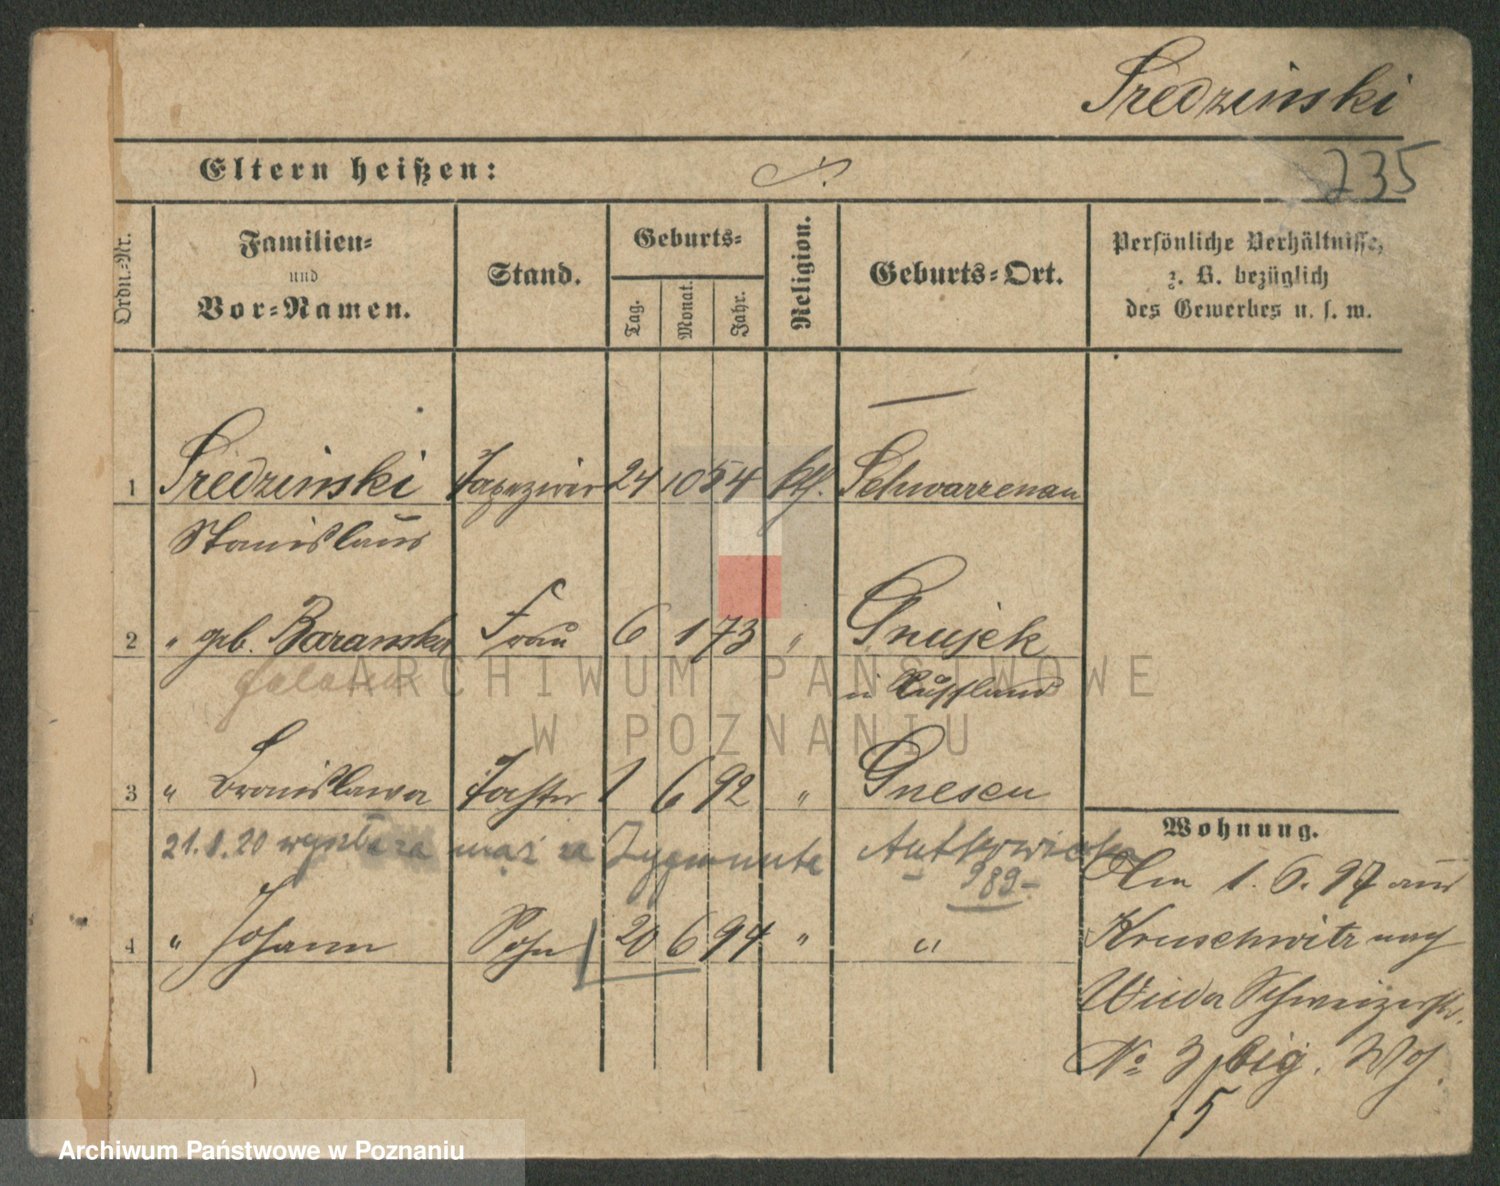 Sredzinski
Eltern heißen:
735
Ordn.-Nr.
Familien-
und
Vor-Namen.
Stand.
Geburts-
Tag.
Monat.
Jahr.
Religion.
Geburts-Ort.
Persönliche Verhältnisse,
z. B. bezüglich
des Gewerbes u. s. w.
1 Sredzinski Tapezirer 24 10 54 kth. Schwarzenau
Stanislaus
2 " geb. Baranska Frau 6 1 73 " Gnujek
in Russland
3 " Bronislawa Tochter 1 6 92 " Gnesen
21.8.20 wyszła za mąż za Zygmunta
989-
4 " Johann Sohn 20 6 94 " "
Wohnung.
Am 1.6.97 aus
Kruschwitz nach
Wilda Schweizerstr.
No 3 bei
ARCHIWUM PAŃSTWOWE
W POZNANIU
Archiwum Państwowe w Poznaniu